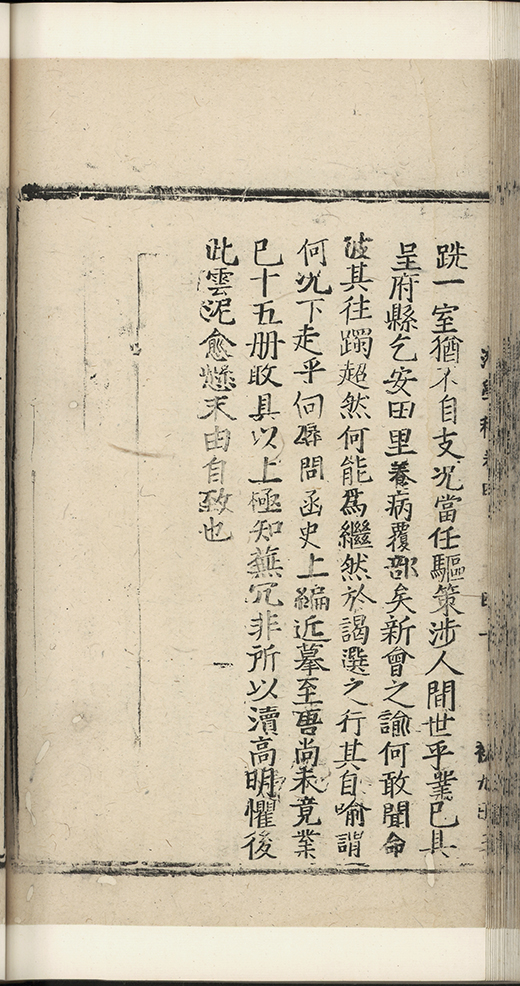 跣一室猶不自支况當任驅策涉人間世乎業已具
呈府縣乞安田里養病覆部矣新會之諭何敢聞命
彼其往躅超然何能爲繼然於謁選之行其自喻謂
何况下走乎伺尋問函史上編近摹至唐尚未竟業
已十五册敢具以上極知蕪冗非所以瀆高明懼後
此雲泥愈懸末由自致也